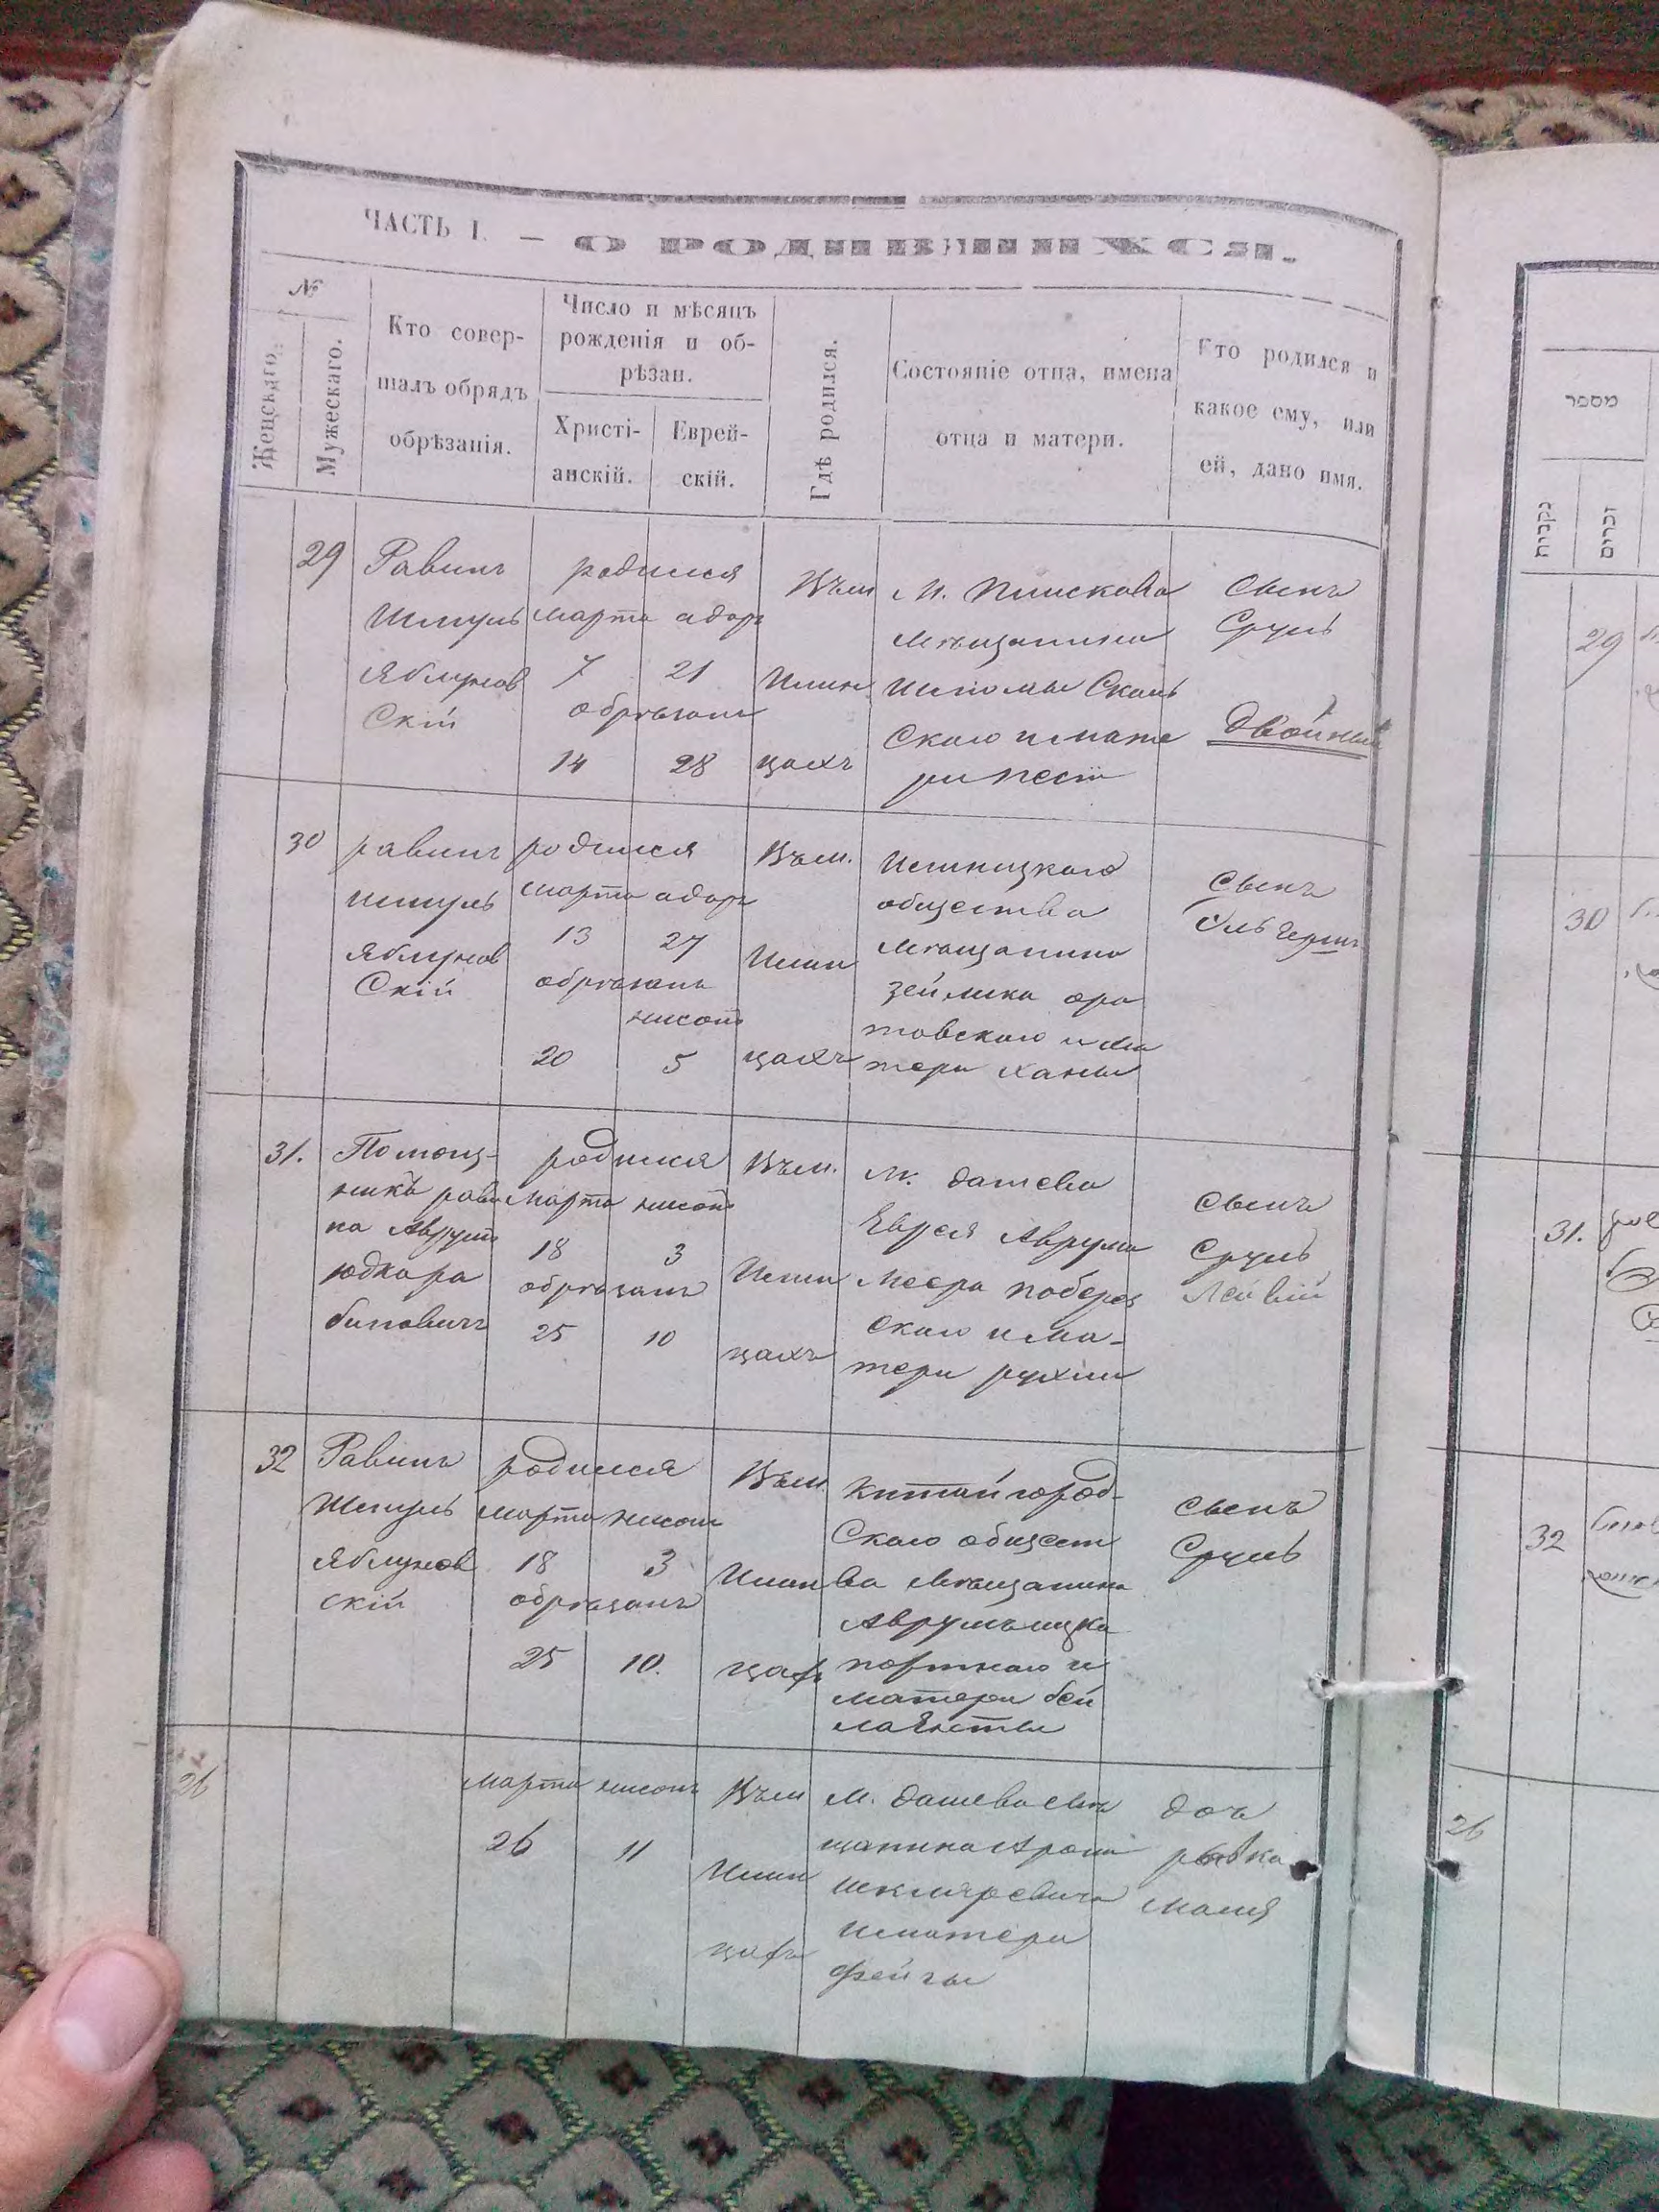 ЧАСТЬ I. — О РОДИВШИХСЯ.
№
Женскаго.
Мужескаго.
Кто совер-
шалъ обрядъ
обрѣзанія.
Число и мѣсяцъ
рожденія и об-
рѣзан.
Христі-
анскій.
Еврей-
скій.
Гдѣ родился.
Состояніе отца, имена
отца и матери.
Кто родился и
какое ему, или
ей, дано имя.
29
Равинъ
Шмуль
Яблунов
Скій
родился
марта адаръ
7 21
обрѣзанъ
14 28
Въм
Илин
цахъ
М. Пиискова
мѣщанина
Шломы
Скаго и мате
ри Песи
Сынъ
Сруль
Двойный
30
равинъ
шмуль
Яблунов
Скій
родился
марта адаръ
13 27
обрѣзанъ
нисонъ
20 5
Въм.
Илин
цахъ
Илинецкаго
общества
мѣщанина
зейлика ора
товскаго и ма
тери ханы
Сынъ
31.
Помощ-
никъ рави
на Аврумъ
юдкора
биновичъ
родился
марта нисонъ
18 3
обрѣзанъ
25 10
Въм.
Илин
цахъ
М. Дашева
Еврея Аврума
Меера поберез
скаго и ма-
тери рухли
Сынъ
Сруль
Лейвій
32
Равинъ
Шмуль
Яблунов
скій
родился
марта нисонъ
18 3
обрѣзанъ
25 10.
Въм
Илин
цахъ
Китайгород-
Скаго общест
ва мѣщанина
Аврумъ ицка
портнаго и
матери бей
лы
сынъ
Сруль
26
марта нисонъ
26 11
Въм
Илин
цахъ
М. Дашева мѣ
щанина Арона
шкляревича
и матери
фейги
дочъ
ривка
малия
מספר
נקבות
זכרים
29
30
31.
32
26